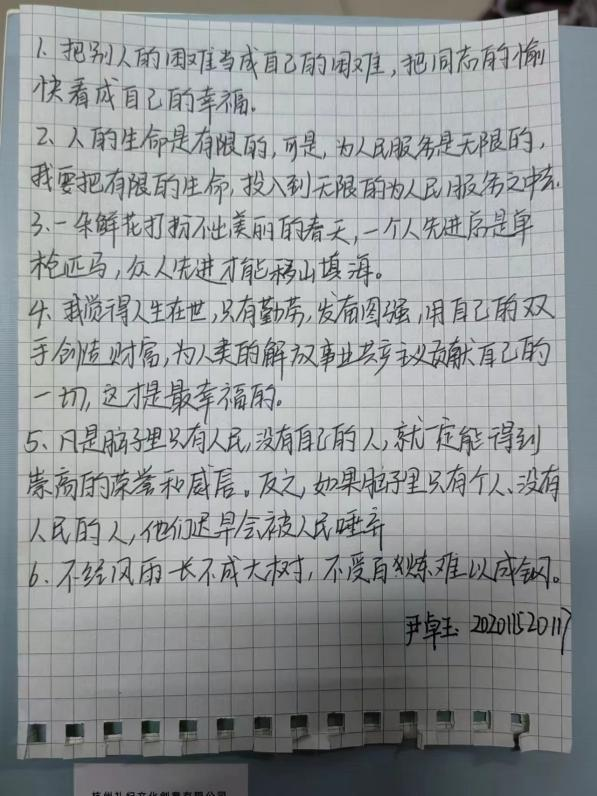 1. 把别人的困难当成自己的困难，把同志的愉
快看成自己的幸福。
2、人的生命是有限的，可是，为人民服务是无限的，
我要把有限的生命，投入到无限的为人民服务之中去.
3.一朵鲜花打扮不出美丽的春天，一个人先进总是单
枪匹马，众人先进才能移山填海。
4、我觉得人生在世，只有勤劳，发奋图强，用自己的双
手创造财富，为人类的解放事业共产主义贡献自己的
一切，这才是最幸福的。
5、凡是脑子里只有人民，没有自己的人，就一定能得到
崇高的荣誉和威信。反之，如果脑子里只有个人、没有
人民的人，他们迟早会被人民唾弃
6、不经风雨长不成大树，不受百炼难以成钢。
尹卓玉 202011520117
杭州礼纪文化创意有限公司